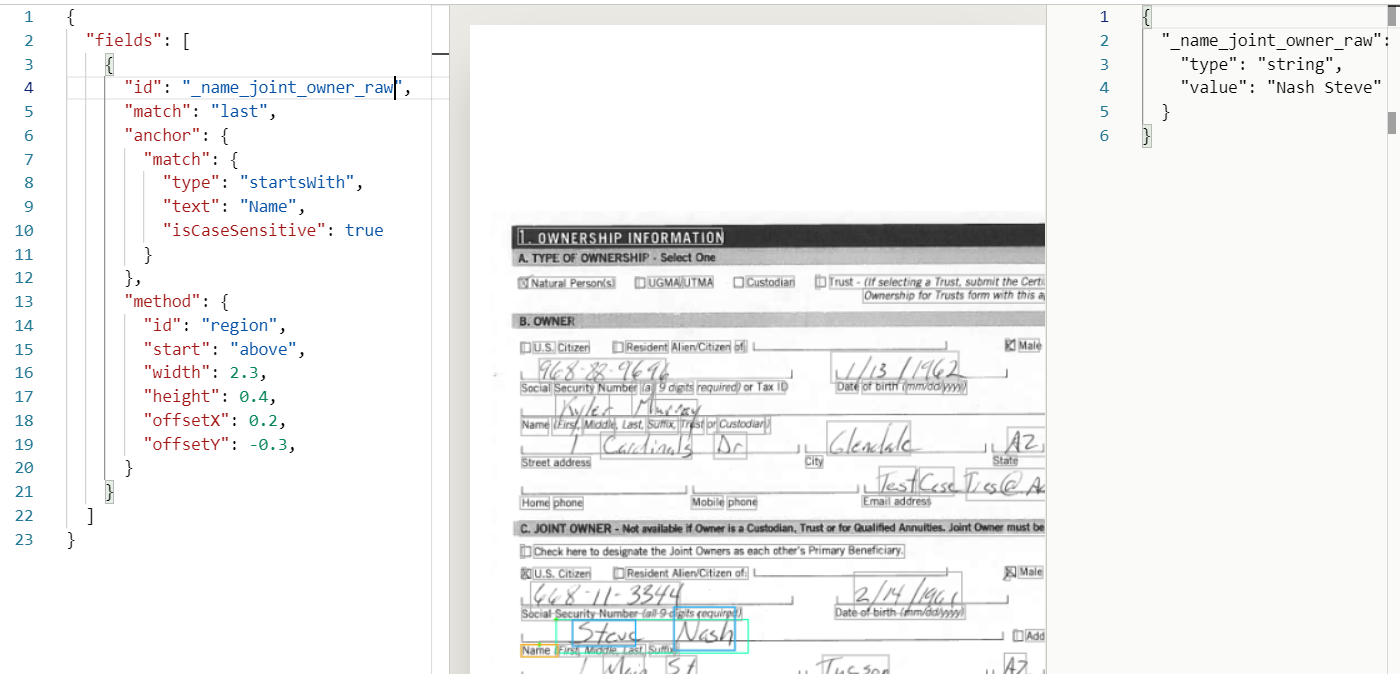 1 {
2 "fields": [
3 {
4 "id": "_name_joint_owner_raw",
5 "match": "last",
6 "anchor": {
7 "match": {
8 "type": "startsWith",
9 "text": "Name",
10 "isCaseSensitive": true
11 }
12 },
13 "method": {
14 "id": "region",
15 "start": "above",
16 "width": 2.3,
17 "height": 0.4,
18 "offsetX": 0.2,
19 "offsetY": -0.3,
20 }
21 }
22 ]
23 }
1. OWNERSHIP INFORMATION
A. TYPE OF OWNERSHIP - Select One
Natural Person(s) UGMA/UTMA Custodian Trust - (If selecting a Trust, submit the
Ownership for Trusts form with this
B. OWNER
U.S. Citizen Resident Alien/Citizen of: Male
968-88-9696 1/13/1962
Social Security Number (all 9 digits required) or Tax ID Date of birth (mm/dd/yyyy)
Kyler Murray
Name (First, Middle, Last, Suffix, Trust or Custodian)
1 Cardinals Dr Glendale AZ
Street address City State
Home phone Mobile phone Email address
C. JOINT OWNER - Not available if Owner is a Custodian, Trust or for Qualified Annuities. Joint Owner must be
Check here to designate the Joint Owners as each other's Primary Beneficiary.
U.S. Citizen Resident Alien/Citizen of: Male
668-11-3344 2/14/1961
Social Security Number (all 9 digits required) Date of birth (mm/dd/yyyy)
Steve Nash
Name (First, Middle, Last, Suffix)
1 Main St Tucson AZ
1 {
2 "_name_joint_owner_raw":
3 "type": "string",
4 "value": "Nash Steve"
5 }
6 }